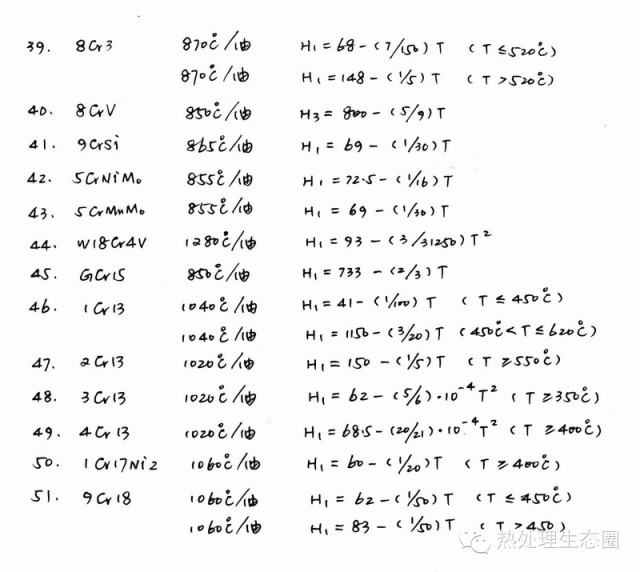 39. 8Cr3 870℃/油 H₁=68-(7/150)T (T≤520℃)
870℃/油 H₁=148-(1/5)T (T>520℃)
40. 8CrV 850℃/油 H3=800-(5/9)T
41. 9CrSi 865℃/油 H₁=69-(1/30)T
42. 5CrNiMo 855℃/油 H₁=72.5-(1/16)T
43. 5CrMnMo 855℃/油 H₁=69-(1/30)T
44. W18Cr4V 1280℃/油 H₁=93-(3/31250)T²
45. GCr15 850℃/油 H₁=733-(2/3)T
46. 1Cr13 1040℃/油 H₁=41-(1/100)T (T≤450℃)
1040℃/油 H₁=1150-(3/20)T (450℃<T≤620℃)
47. 2Cr13 1020℃/油 H₁=150-(1/5)T (T≥550℃)
48. 3Cr13 1020℃/油 H₁=62-(5/6)·10⁻⁴T² (T≥350℃)
49. 4Cr13 1020℃/油 H₁=68.5-(20/21)·10⁻⁴T² (T≥400℃)
50. 1Cr17Ni2 1060℃/油 H₁=60-(1/20)T (T≥400℃)
51. 9Cr18 1060℃/油 H₁=62-(1/50)T (T≤450℃)
1060℃/油 H₁=83-(1/50)T (T>450)
热处理生态圈